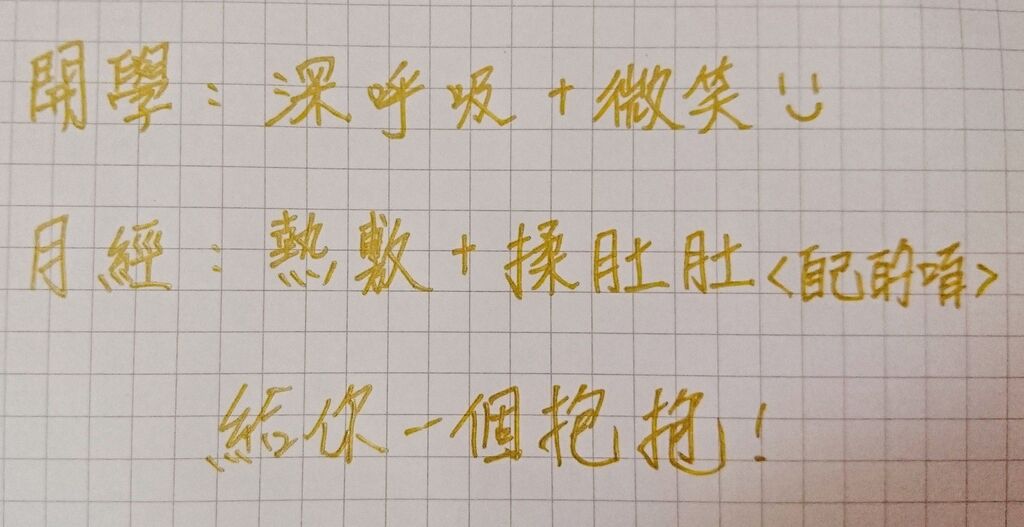 開學：深呼吸＋微笑 :)
月經：熱敷＋揉肚肚<自己的唷>
給你一個抱抱！